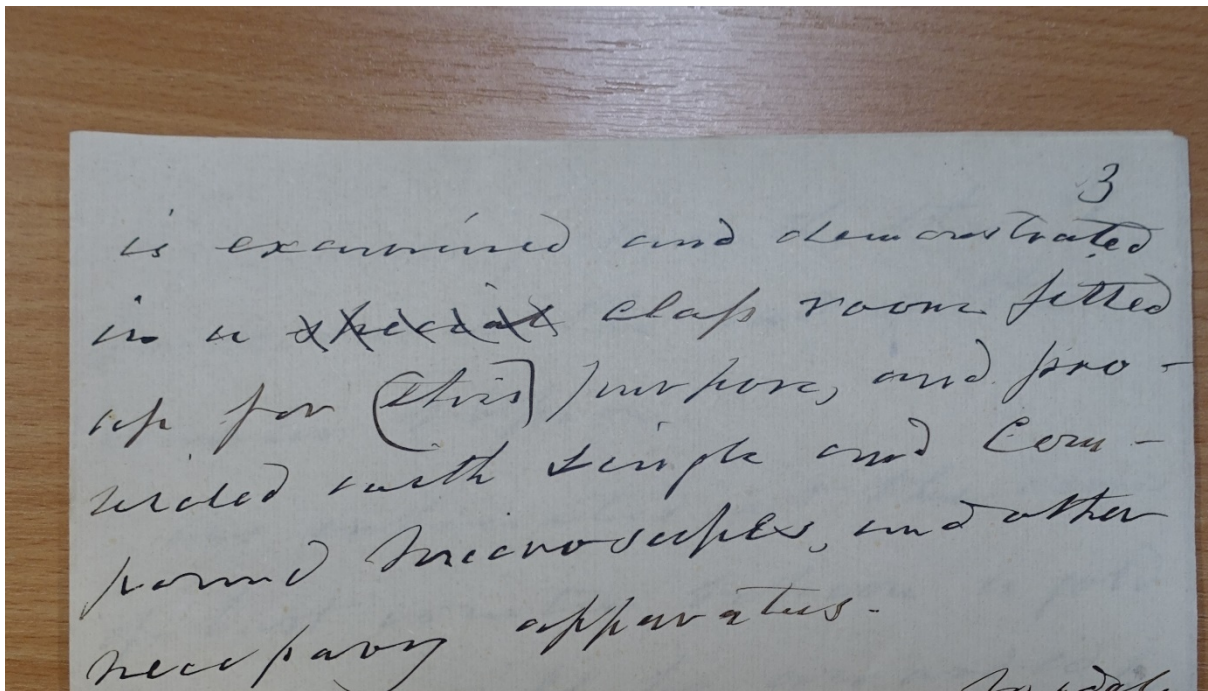 3
is examined and demonstrated
in a special class room fitted
up for (this) purpose, and pro-
vided with single and Com-
pound microscopes, and other
necessary apparatus.